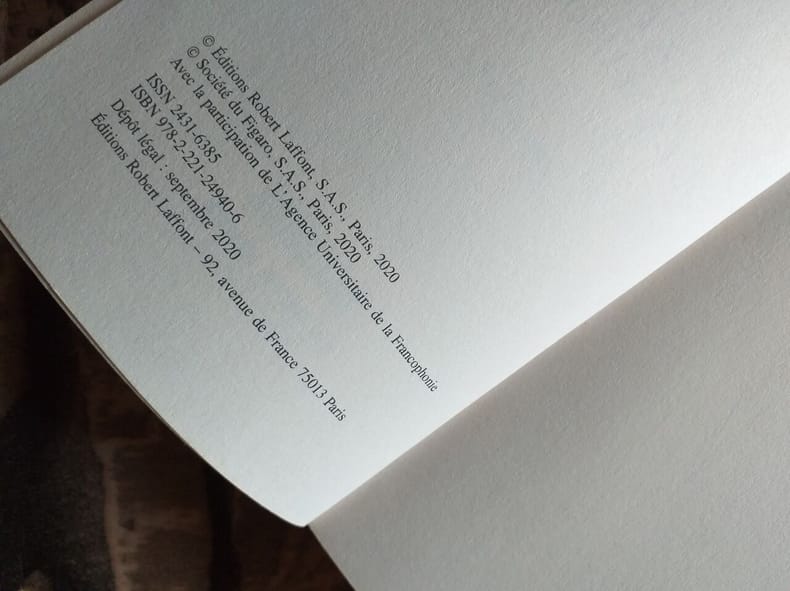 © Éditions Robert Laffont, S.A.S., Paris, 2020
© Société du Figaro, S.A.S., Paris, 2020
Avec la participation de L'Agence Universitaire de la Francophonie
ISSN 2431-6385
ISBN 978-2-221-24940-6
Dépôt légal : septembre 2020
Éditions Robert Laffont – 92, avenue de France 75013 Paris